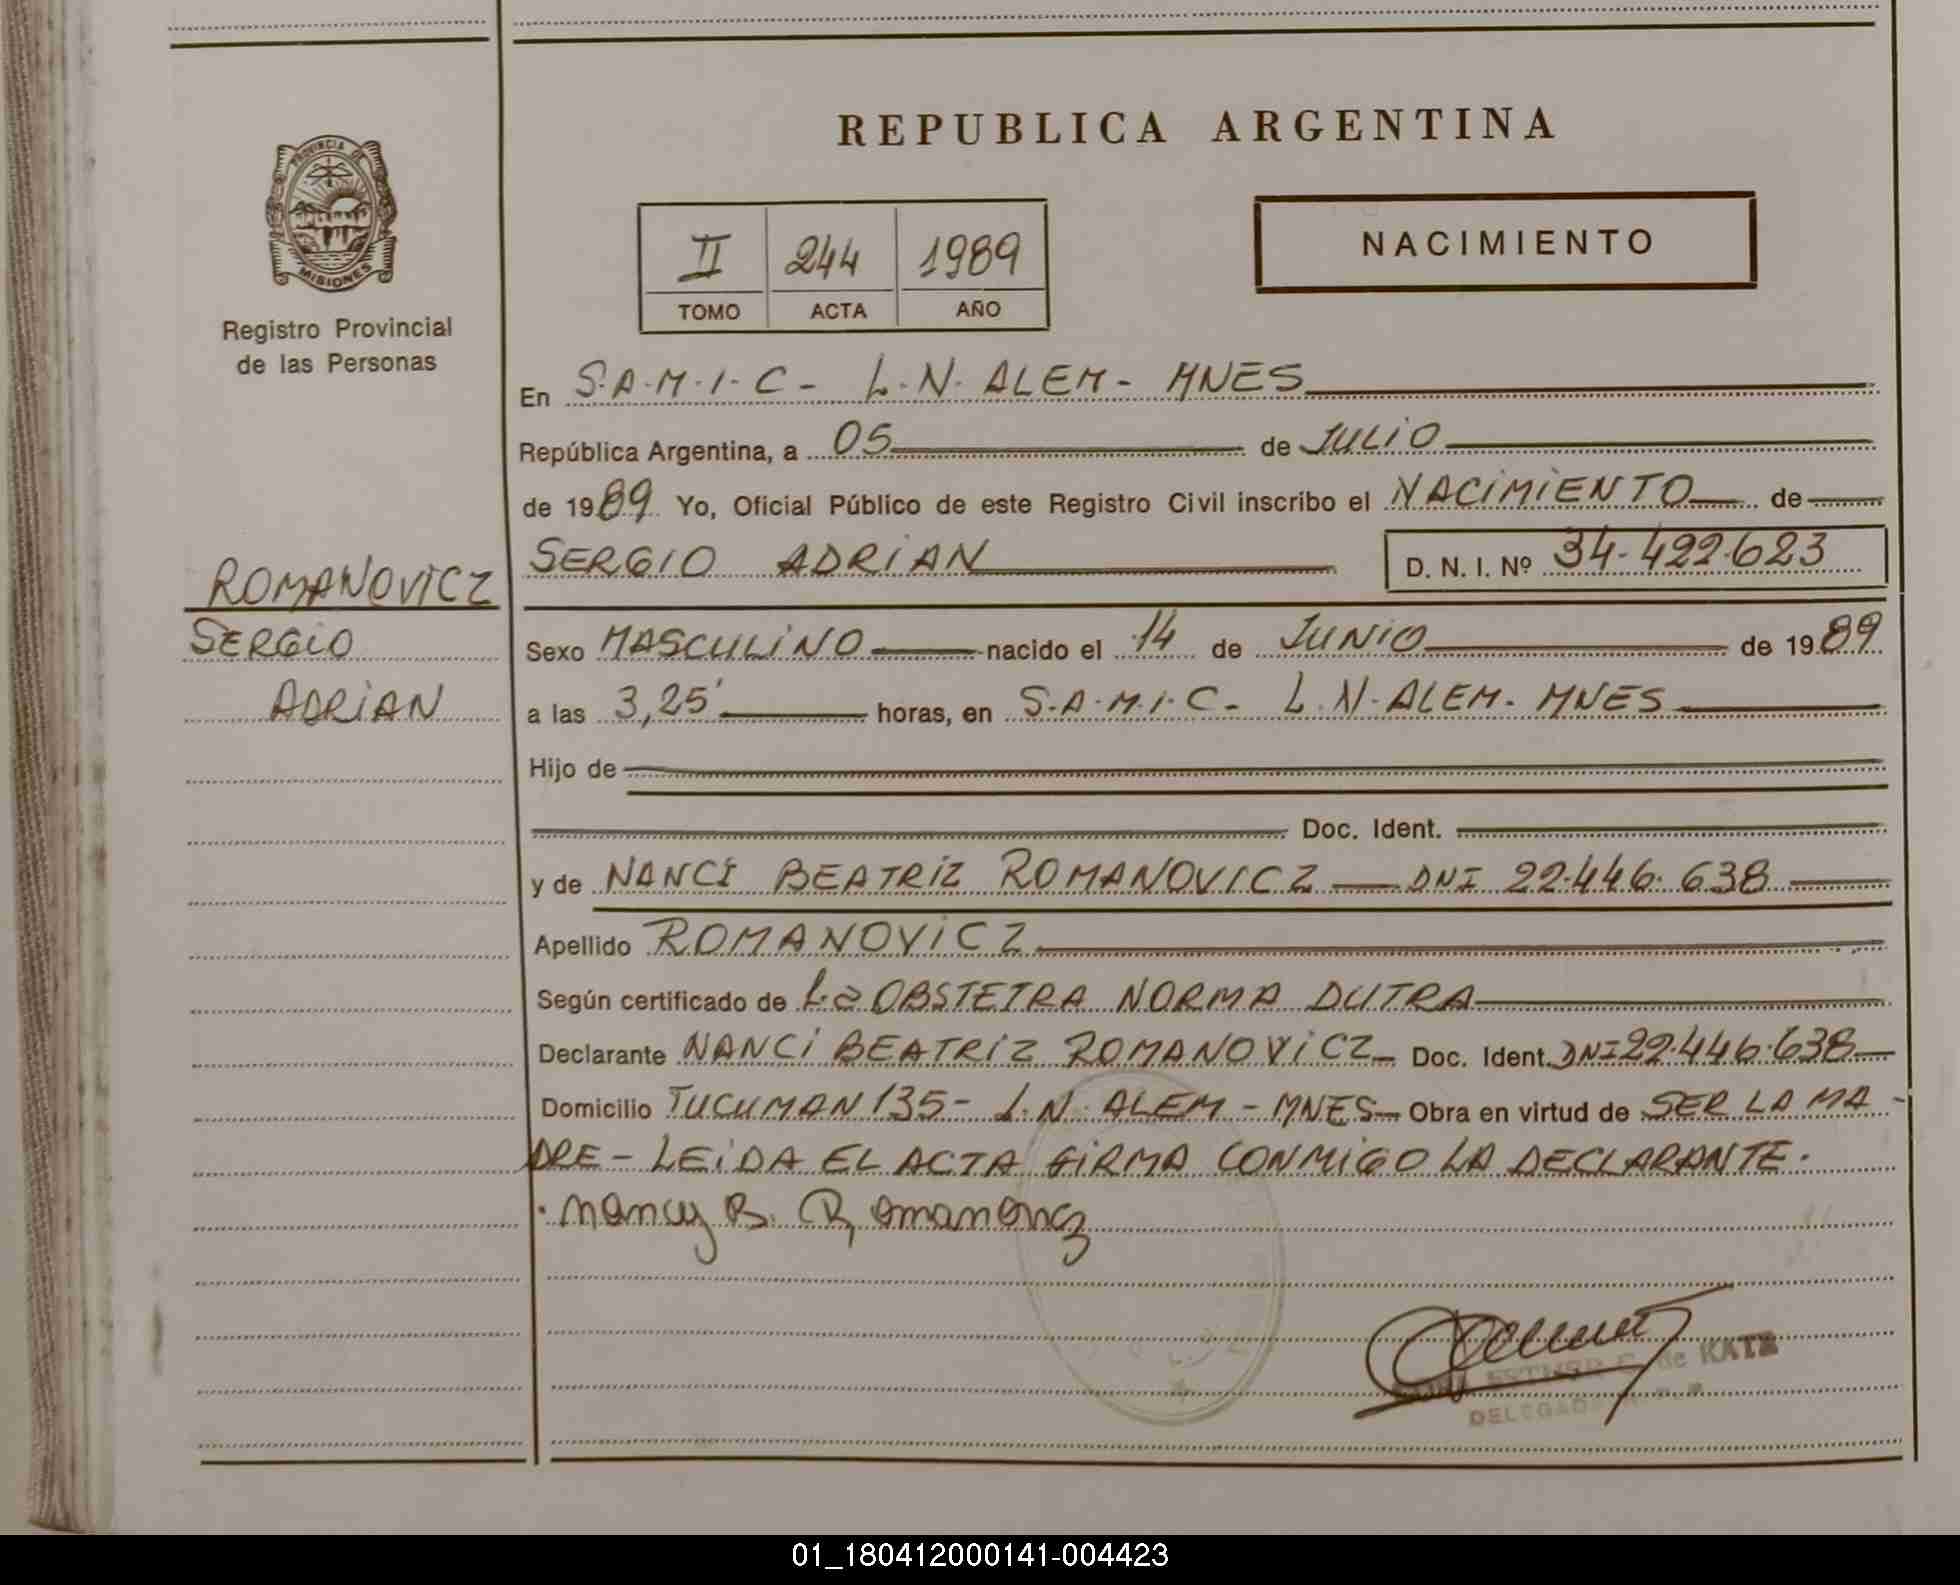 REPUBLICA ARGENTINA
PROVINCIA DE
MISIONES
Registro Provincial
de las Personas
II 244 1989
TOMO ACTA AÑO
NACIMIENTO
En S.A.M.I.C- L.N. ALEM- MNES
República Argentina, a 05 de JULIO
de 1989 Yo, Oficial Público de este Registro Civil inscribo el NACIMIENTO de
SERGIO ADRIAN D. N. I. Nº 34.422.623
ROMANOVICZ
SERGIO
ADRIAN
Sexo MASCULINO nacido el 14 de JUNIO de 1989
a las 3,25' horas, en S.A.M.I.C- L.N. ALEM- MNES
Hijo de
Doc. Ident.
y de NANCI BEATRIZ ROMANOVICZ — DNI 22.446.638
Apellido ROMANOVICZ
Según certificado de La OBSTETRA NORMA DUTRA
Declarante NANCI BEATRIZ ROMANOVICZ Doc. Ident. DNI 22.446.638
Domicilio TUCUMAN 135- L.N. ALEM - MNES Obra en virtud de SER LA MA-
DRE - LEIDA EL ACTA FIRMA CONMIGO LA DECLARANTE.
Nancy B. Romanovicz
ESTHER de KATZ
01_180412000141-004423